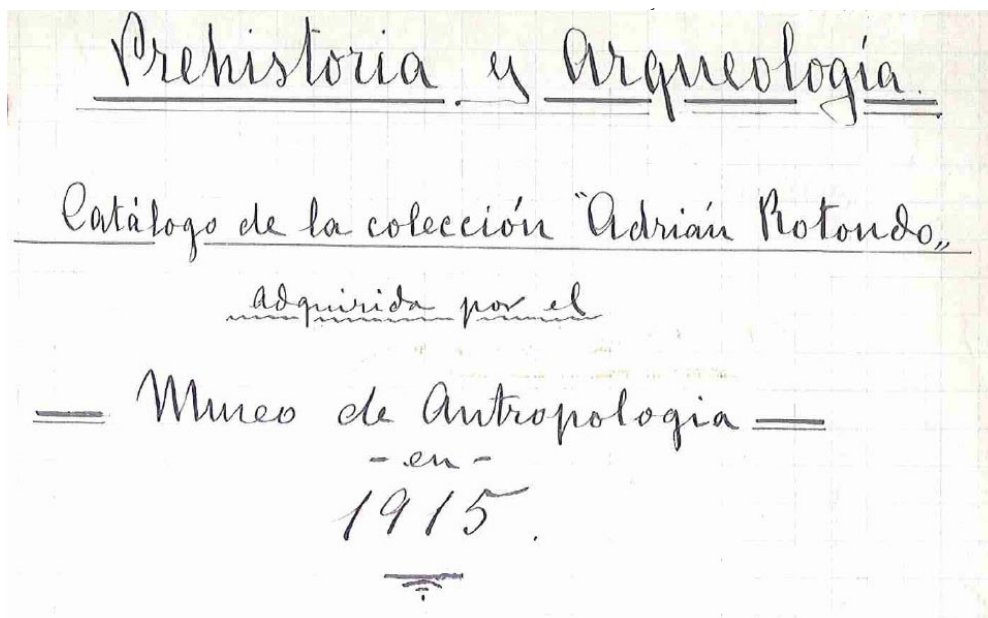 Prehistoria y Arqueología.
Catálogo de la colección "Adrián Rotondo„
adquirida por el
Museo de Antropologia
- en -
1915.